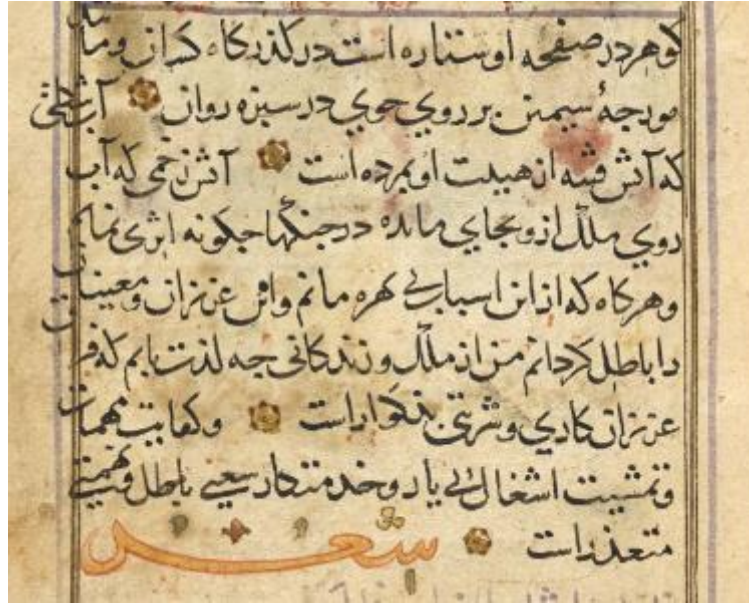 گوهر در صفحه او ستاره است در گذرگاه کسان و ماه
مورجهٔ سیمین بر روی جوی در سبزه روان آب
که آتش فتنه از هیبت او بمرده است آتش زخمی که آب
روی ملک ازو بجای مانده در جنگها چگونه اثری نمایم
و هرگاه که از این اسباب بی بهره مانم و این عزیزان و معینان
را باطل گردانم من از ملک و زندگانی چه لذت یابم که فر
عزیزان کاری و شربتی بدگوار است و کفایت مهمات
و تمشیت اشغال بی یار و خدمتکار سعیی باطل و نهمتی
متعذر است شعر